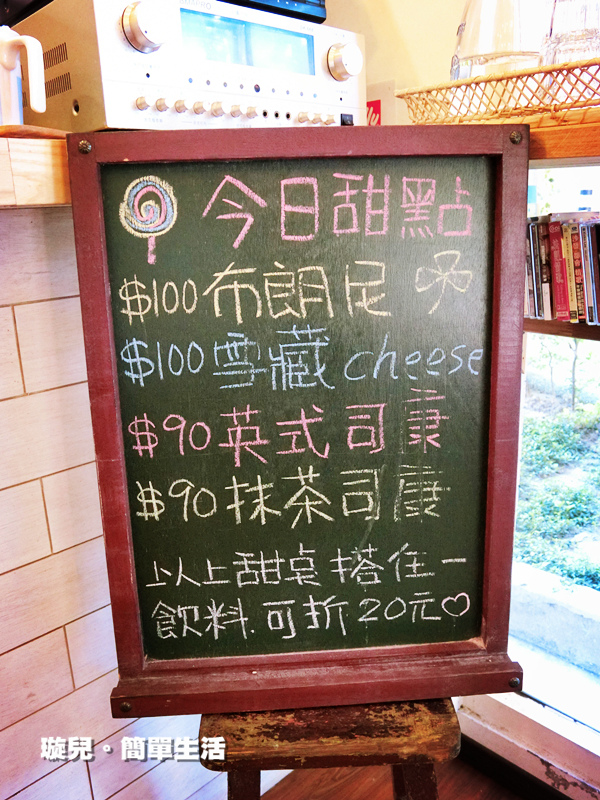 今日甜點
$100 布朗尼
$100 雪藏 cheese
$90 英式司康
$90 抹茶司康
以上甜桌搭任一
飲料.可折20元♡
璇兒。簡單生活